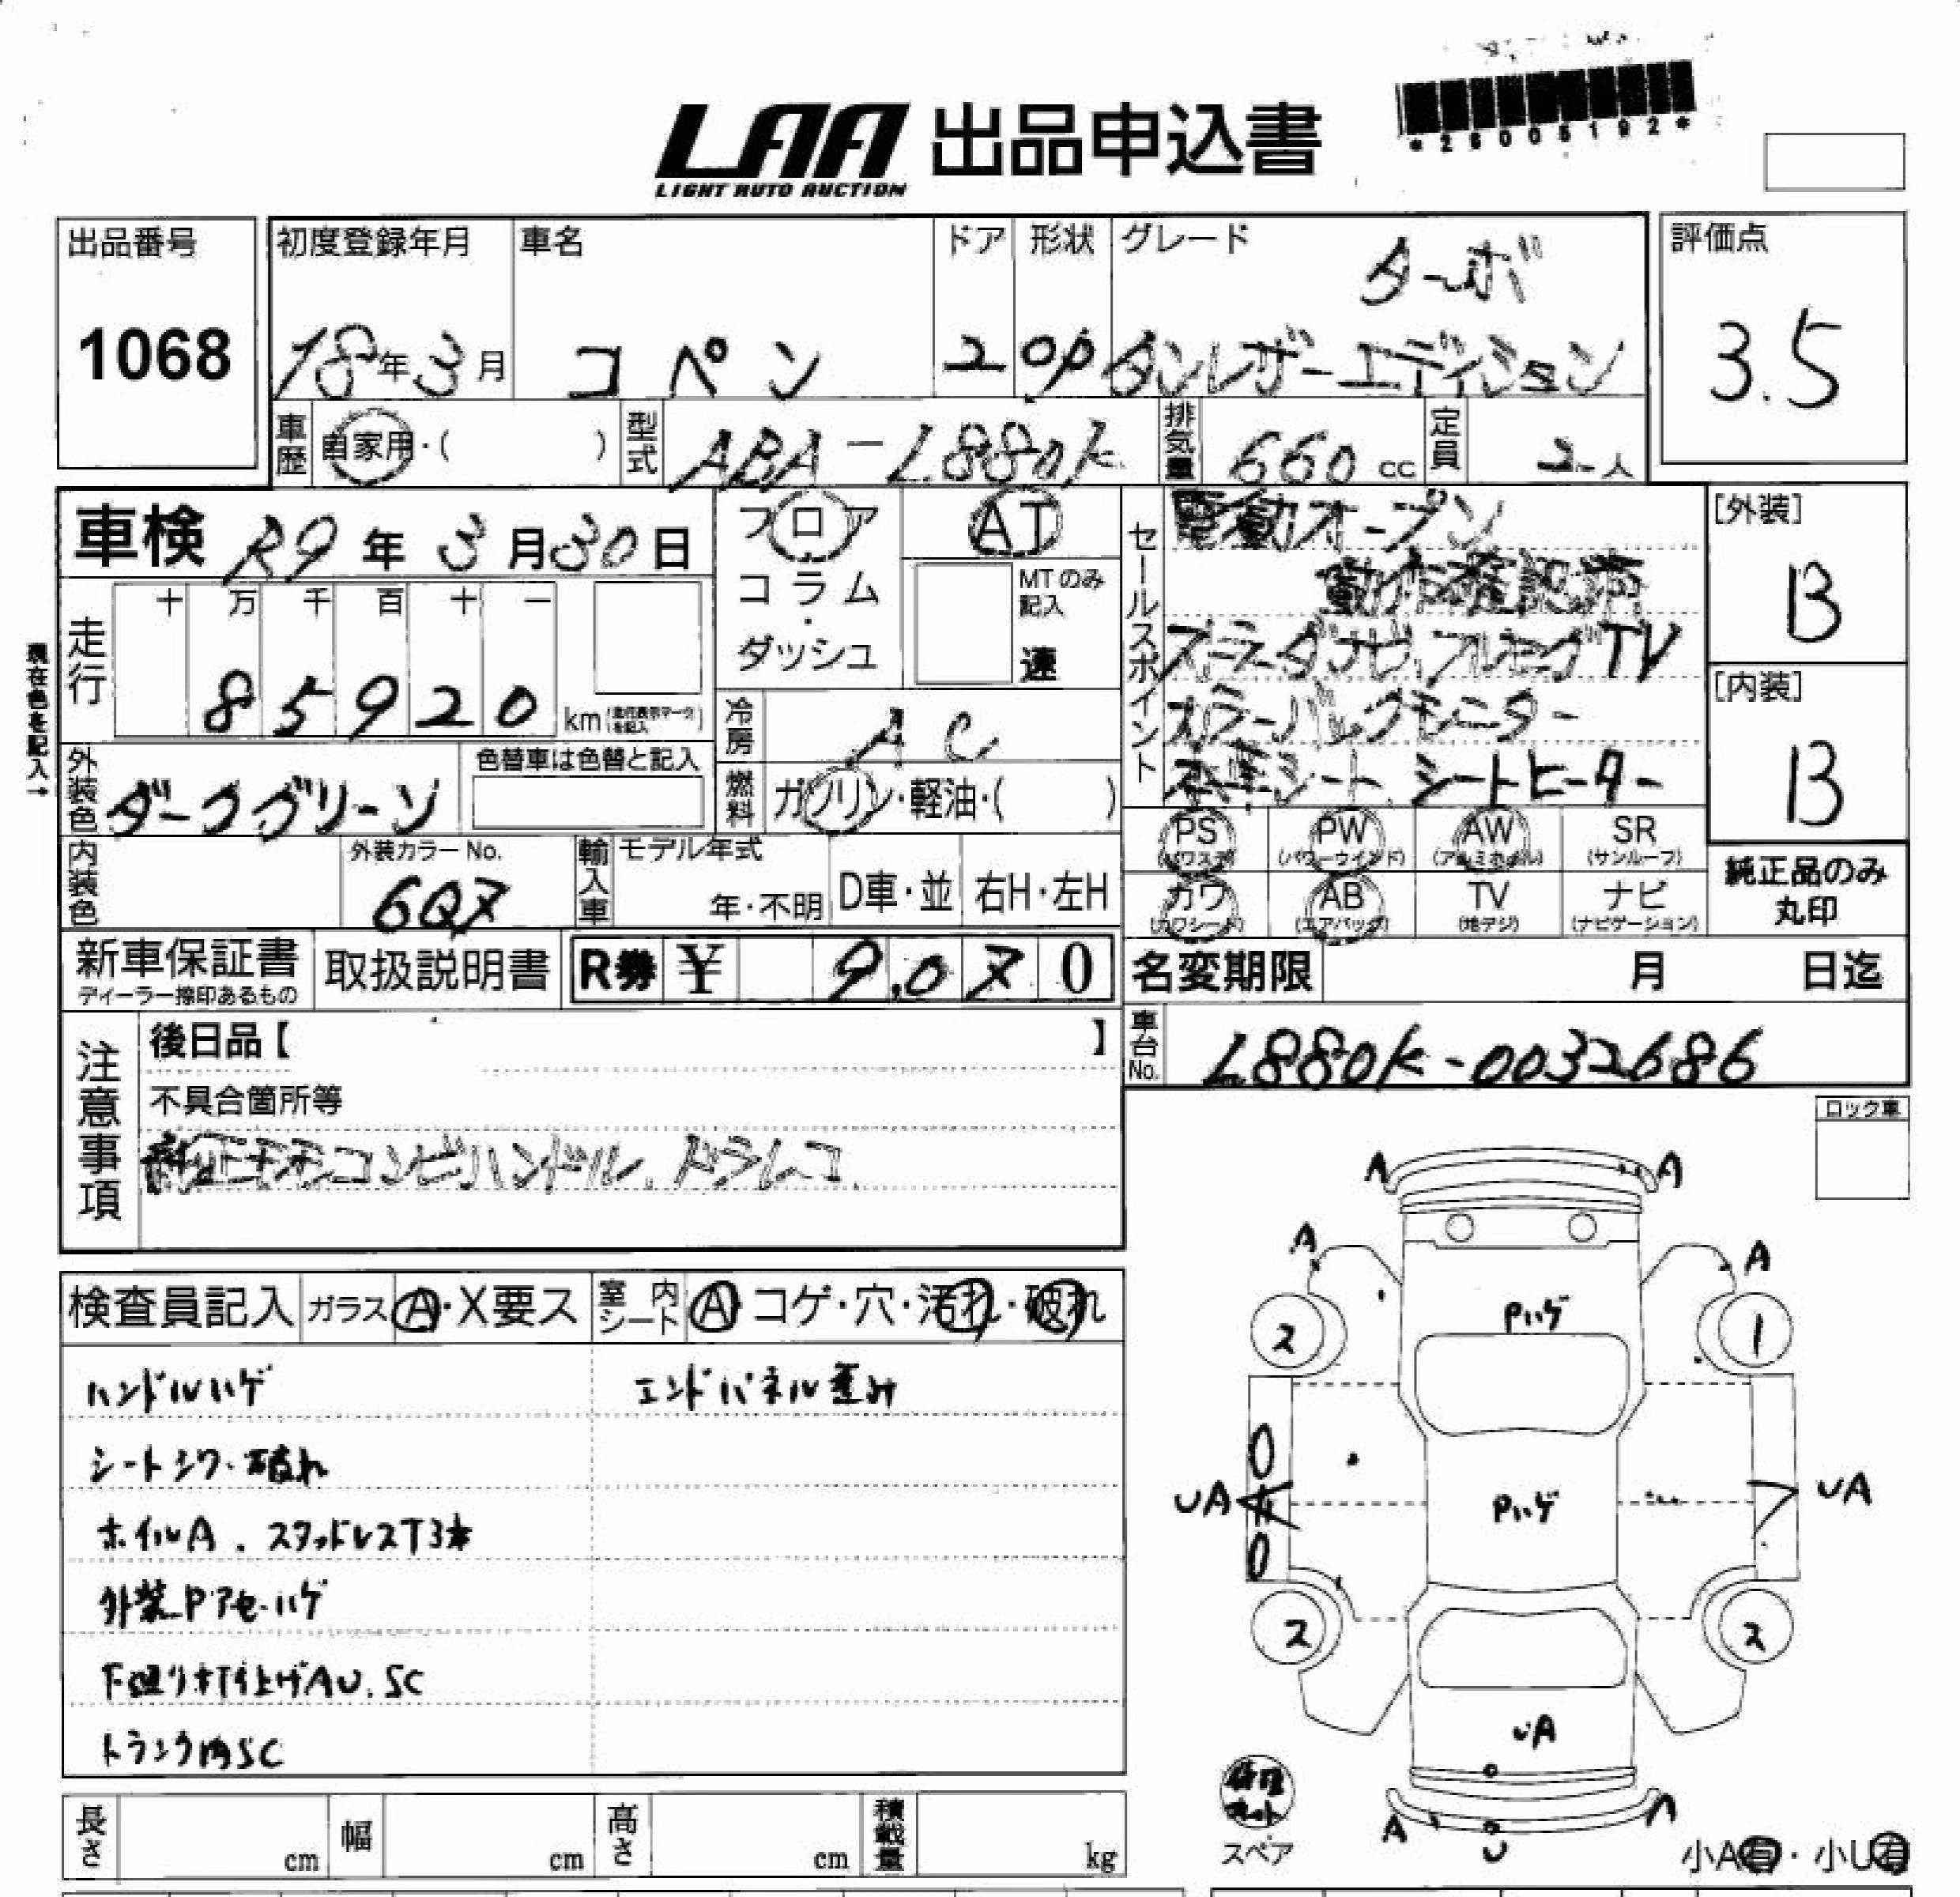 LAA 出品申込書
LIGHT AUTO AUCTION
*26005192*
出品番号
1068
初度登録年月
18年3月
車名
コペン
ドア
2
形状
OP
グレード
ターボ
タンレザーエディション
評価点
3.5
車歴
自家用・( )
型式
ABA-L880K
排気量
660 cc
定員
2人
車検 R9年3月30日
フロア
コラム・ダッシュ
AT
MTのみ記入
速
セールスポイント
電動オープン
動作確認済
プラーダナビ フルセグTV
カラーバックモニター
本革シート シートヒーター
[外装]
B
[内装]
B
現在色を記入→
走行
十 万 千 百 十 一
85920 km
冷房
AC
外装色
ダークグリーン
色替車は色替と記入
燃料
ガソリン・軽油・( )
内装色
外装カラーNo.
6Q7
輸入車
モデル年式
年・不明
D車・並
右H・左H
PS (パワステ)
PW (パワーウインド)
AW (アルミホイル)
SR (サンルーフ)
カワ (カワシート)
AB (エアバッグ)
TV (地デジ)
ナビ (ナビゲーション)
純正品のみ
丸印
新車保証書
ディーラー捺印あるもの
取扱説明書
R券 ¥ 9,070
名変期限 月 日迄
車台No.
L880K-0032686
注意事項
後日品【 】
不具合箇所等
純正モモコンビハンドル、ドラレコ
ロック車
検査員記入
ガラス A・X要ス
室内シート A コゲ・穴・汚れ・破れ
ハンドルハゲ
エンドパネル歪み
シートシワ・破れ
ホイルA、スタッドレスT3本
外装Pアセ・ハゲ
下廻りキ打上げAU、SC
トランク内SC
A A
A A
Pハゲ
2 1
UA Pハゲ UA
2 2
UA
A A
U
修理キット
スペア
小A有・小U有
長さ cm
幅 cm
高さ cm
積載量 kg